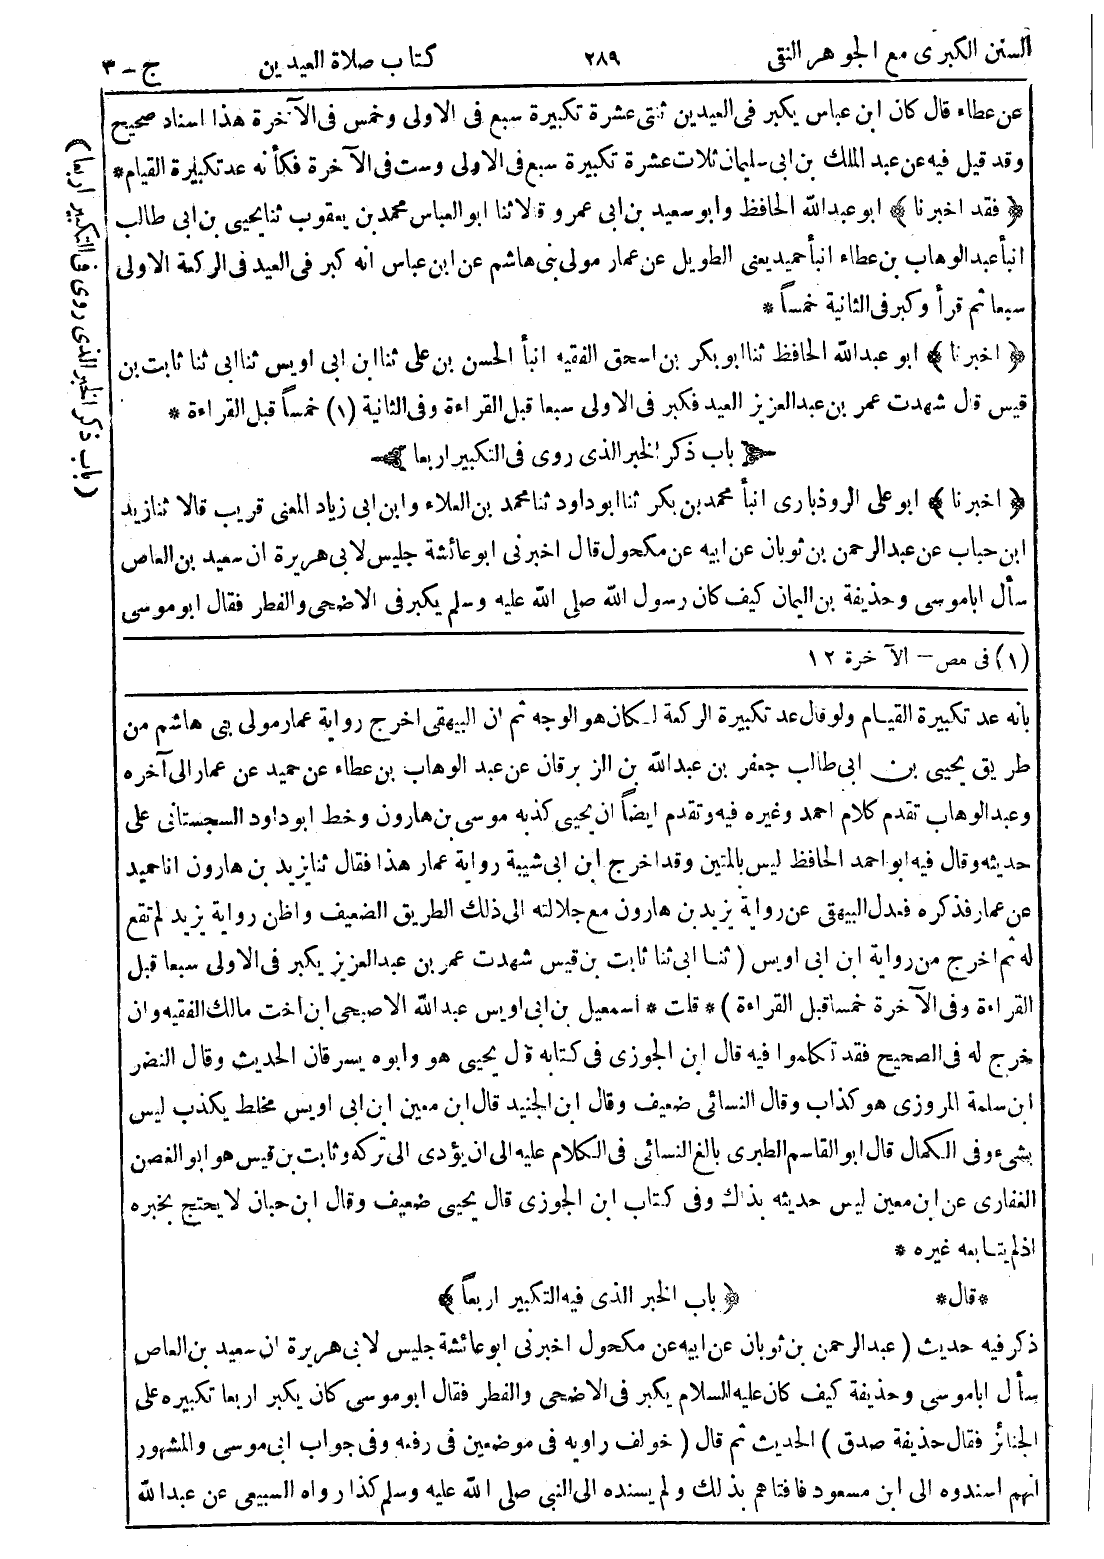 السنن الكبرى مع الجوهر النقى ٢٨٩ كتاب صلاة العيدين ج - ٣
عن عطاء قال كان ابن عباس يكبر فى العيدين ثنتى عشرة تكبيرة سبع فى الاولى وخمس فى الآخرة هذا اسناد صحيح
وقد قيل فيه عن عبد الملك بن ابى سليمان ثلاث عشرة تكبيرة سبع فى الاولى وست فى الآخرة فكأنه عد تكبيرة القيام *
﴿ فقد اخبرنا ﴾ ابو عبدالله الحافظ وابو سعيد بن ابى عمرو قالا ثنا ابو العباس محمد بن يعقوب ثنا يحيى بن ابى طالب
انبأ عبد الوهاب بن عطاء انبأ حميد يعنى الطويل عن عمار مولى بنى هاشم عن ابن عباس انه كبر فى العيد فى الركعة الاولى
سبعا ثم قرأ وكبر فى الثانية خمساً *
﴿ اخبرنا ﴾ ابو عبدالله الحافظ ثنا ابو بكر بن اسحق الفقيه انبأ الحسن بن على ثنا ابن ابى اويس ثنا ابى ثنا ثابت بن
قيس قال شهدت عمر بن عبد العزيز العيد فكبر فى الاولى سبعا قبل القراءة وفى الثانية (١) خمساً قبل القراءة *
باب ذكر الخبر الذى روى فى التكبير اربعا
﴿ اخبرنا ﴾ ابو على الروذبارى انبأ محمد بن بكر ثنا ابو داود ثنا محمد بن العلاء وابن ابى زياد المعنى قريب قالا ثنا زيد
ابن حباب عن عبد الرحمن بن ثوبان عن ابيه عن مكحول قال اخبرنى ابو عائشة جليس لابى هريرة ان سعيد بن العاص
سأل اباموسى وحذيفة بن اليمان كيف كان رسول الله صلى الله عليه وسلم يكبر فى الاضحى والفطر فقال ابو موسى
(باب ذكر الخبر الذى روى فى التكبير اربعا)
(١) فى مص - الآخرة ١٢
بانه عد تكبيرة القيام ولو قال عد تكبيرة الركعة لكان هو الوجه ثم ان البيهقى اخرج رواية عمار مولى بنى هاشم من
طريق يحيى بن ابى طالب جعفر بن عبدالله بن الزبرقان عن عبد الوهاب بن عطاء عن حميد عن عمار الى آخره
وعبد الوهاب تقدم كلام احمد وغيره فيه وتقدم ايضاً ان يحيى كذبه موسى بن هارون وخط ابو داود السجستانى على
حديثه وقال فيه ابو احمد الحافظ ليس بالمتين وقد اخرج ابن ابى شيبة رواية عمار هذا فقال ثنا يزيد بن هارون انا حميد
عن عمار فذكره فعدل البيهقى عن رواية يزيد بن هارون مع جلالته الى ذلك الطريق الضعيف واظن رواية يزيد لم تقع
له ثم اخرج من رواية ابن ابى اويس ( ثنا ابى ثنا ثابت بن قيس شهدت عمر بن عبد العزيز يكبر فى الاولى سبعا قبل
القراءة وفى الآخرة خمسا قبل القراءة ) * قلت * اسمعيل بن ابى اويس عبد الله الاصبحى ابن اخت مالك الفقيه وان
خرج له فى الصحيح فقد تكلموا فيه قال ابن الجوزى فى كتابه قال يحيى هو وابوه يسرقان الحديث وقال النضر
ابن سلمة المروزى هو كذاب وقال النسائى ضعيف وقال ابن الجنيد قال ابن معين ابن ابى اويس مخلط يكذب ليس
بشىء وفى الكمال قال ابو القاسم الطبرى بالغ النسائى فى الكلام عليه الى ان يؤدى الى تركه وثابت بن قيس هو ابو الغصن
الغفارى عن ابن معين ليس حديثه بذاك وفى كتاب ابن الجوزى قال يحيى ضعيف وقال ابن حبان لا يحتج بخبره
اذا لم يتابعه غيره *
* قال * ﴿ باب الخبر الذى فيه التكبير اربعاً ﴾
ذكر فيه حديث ( عبد الرحمن بن ثوبان عن ابيه عن مكحول اخبرنى ابو عائشة جليس لابى هريرة ان سعيد بن العاص
سأل اباموسى وحذيفة كيف كان عليه السلام يكبر فى الاضحى والفطر فقال ابو موسى كان يكبر اربعا تكبيره على
الجنائز فقال حذيفة صدق ) الحديث ثم قال ( خولف راويه فى موضعين فى رفعه وفى جواب ابى موسى والمشهور
انهم اسندوه الى ابن مسعود فافتاهم بذلك ولم يسنده الى النبى صلى الله عليه وسلم كذا رواه السبيعى عن عبدالله